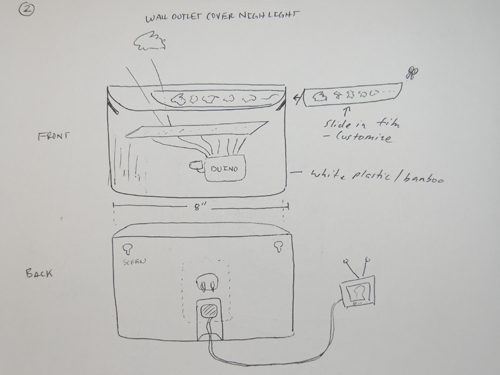 2
WALL OUTLET COVER NIGHLIGHT
FRONT
DUINO
Slide in film
- Customize
white plastic/bamboo
8"
BACK
SCREW